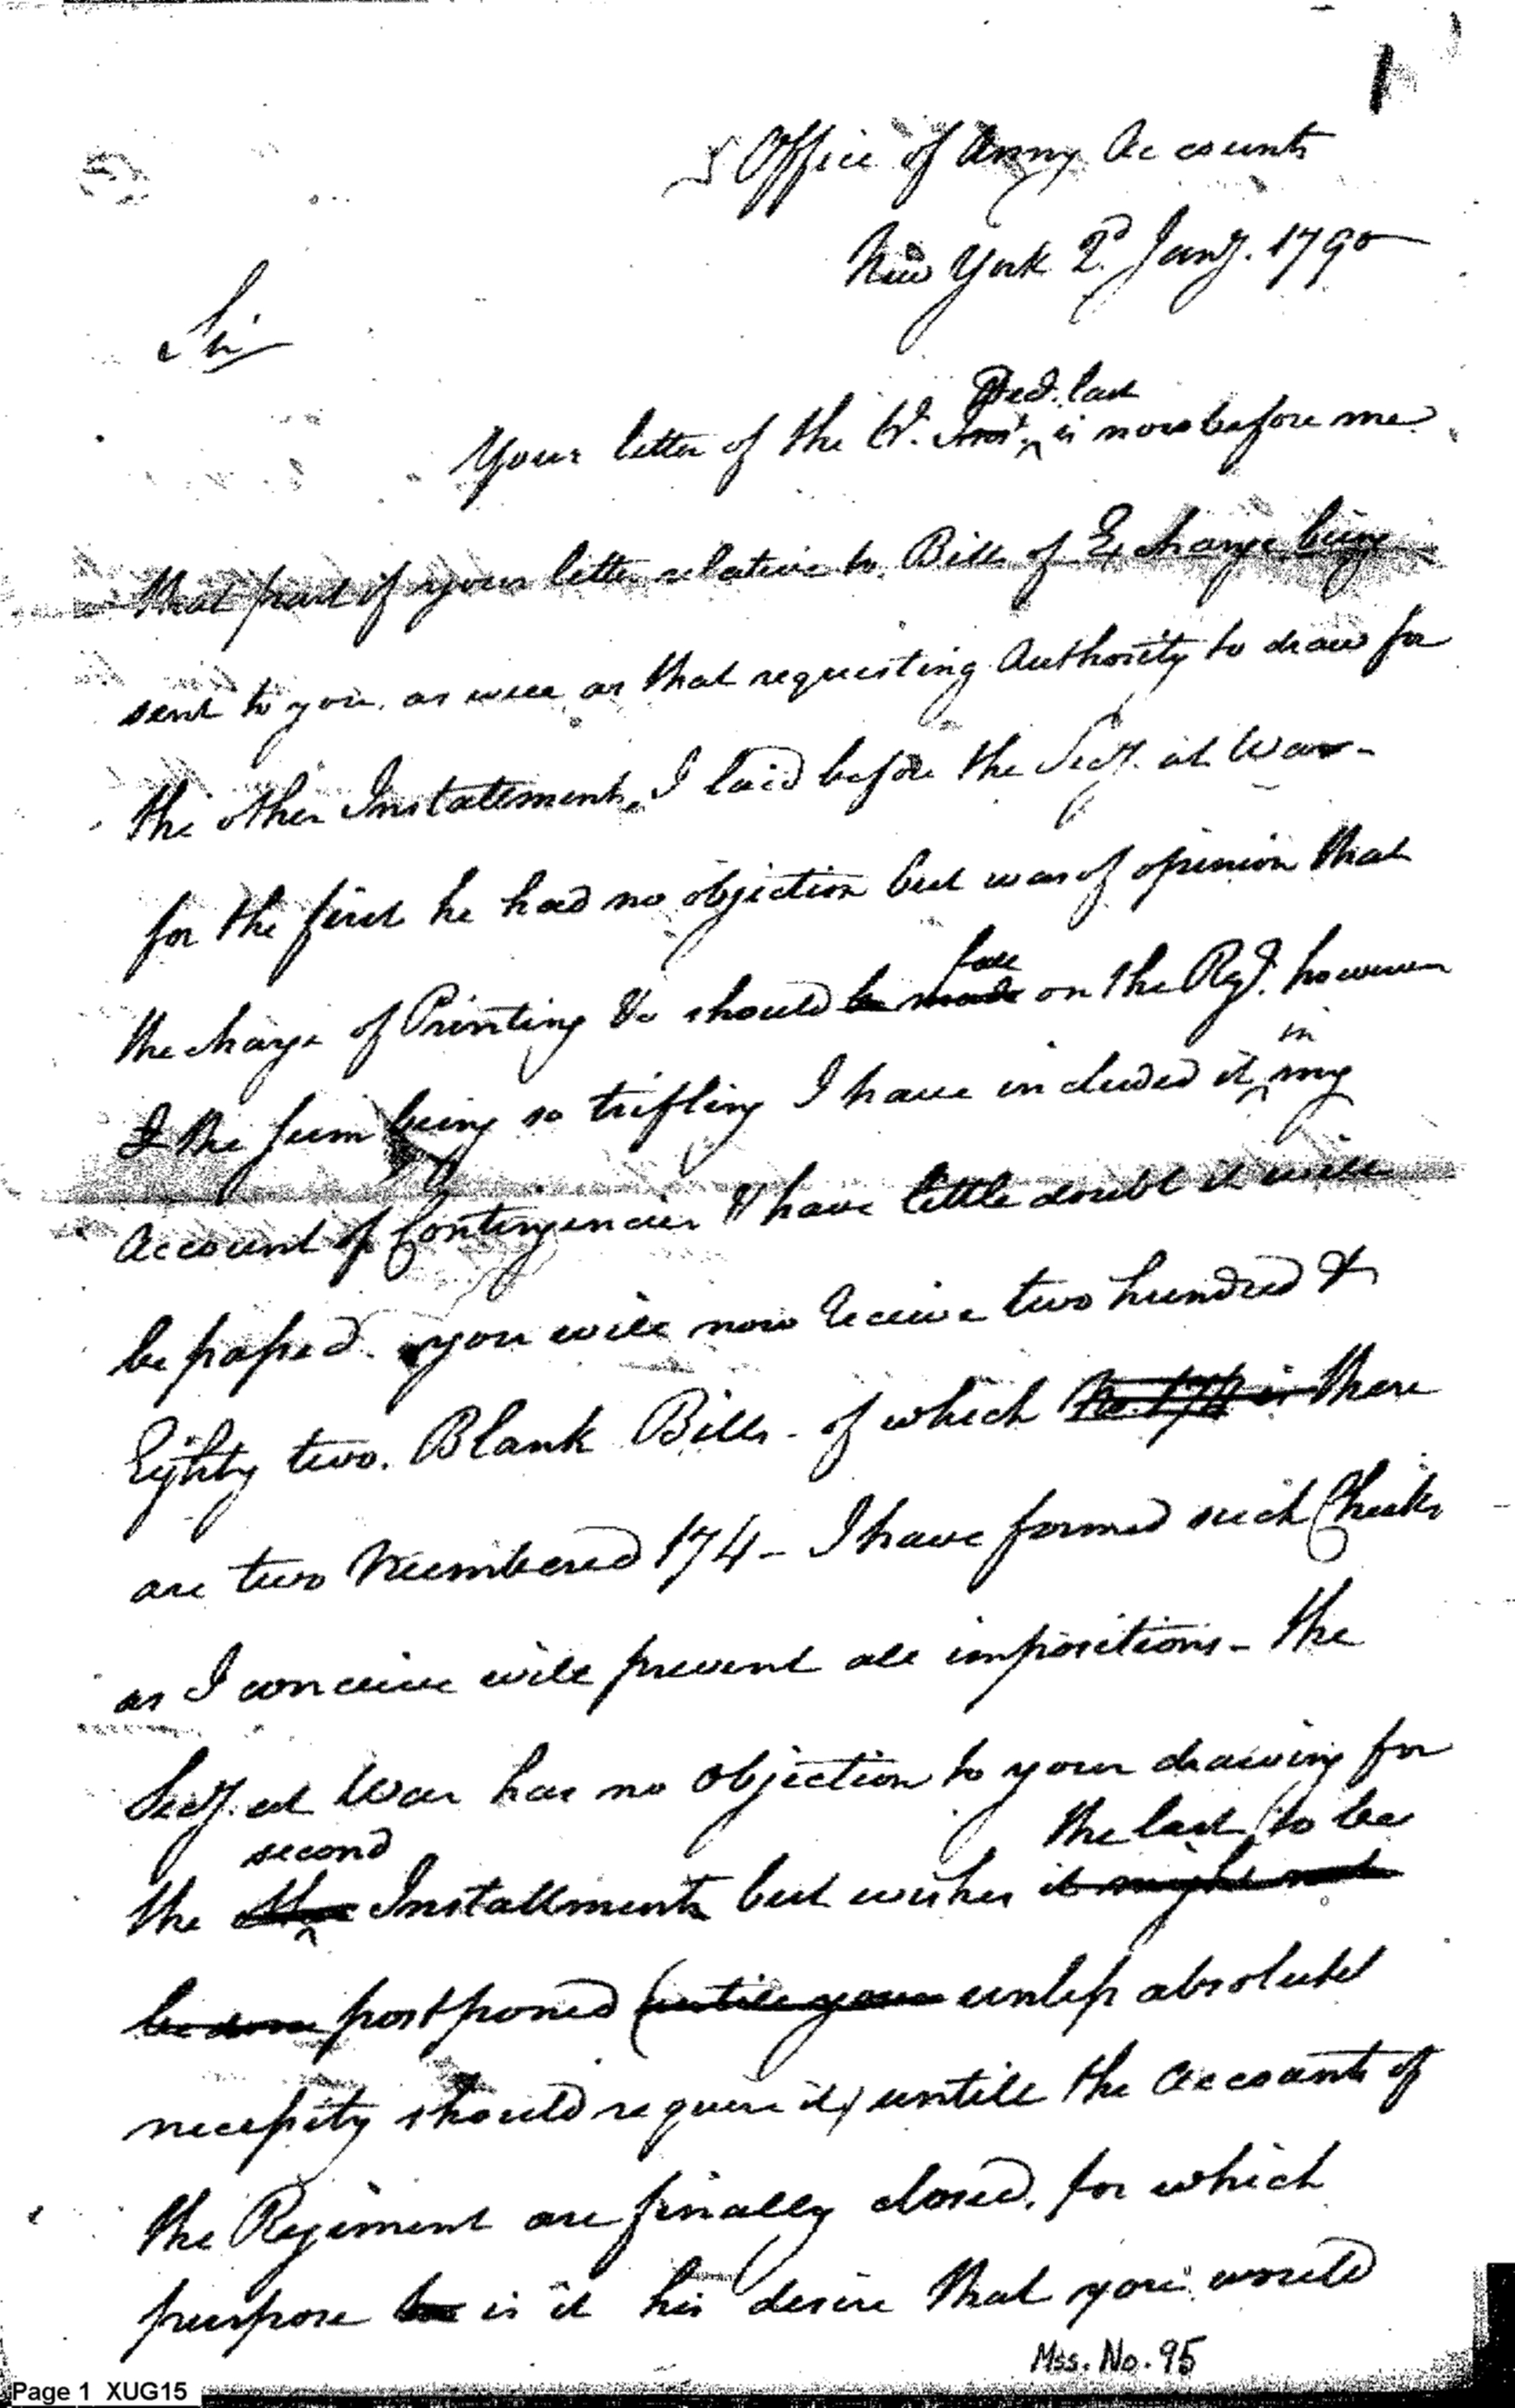 Office of Army Accounts
New York 2d. Jany. 1790
Sir
Decr. last
Your letter of the 6th. Inst. is now before me
that part of your letter relative to Bills of Exchange being
sent to you, as well as that requesting Authority to draw for
the other Instatements, I laid before the Secy. at War -
for the first he had no objection but was of opinion that
fall
the charge of Printing &c should be made on the Regt. however
in
I the sum being so trifling I have included it my
Account of Contingencies & have little doubt it will
be passed. you will now receive two hundred &
Eighty two. Blank Bills - of which No. 174 is there
are two Numbered 174 - I have formed such Checks
as I conceive will prevent all impositions - the
Secy. at War has no Objection to your drawing for
second the last to be
the other Installments but wishes it might not
be done postponed (untill your unless absolute
necessity should require it) untill the Accounts of
the Regiment are finally closed, for which
purpose is it his desire that you would
Mss. No. 95
Page 1 XUG15